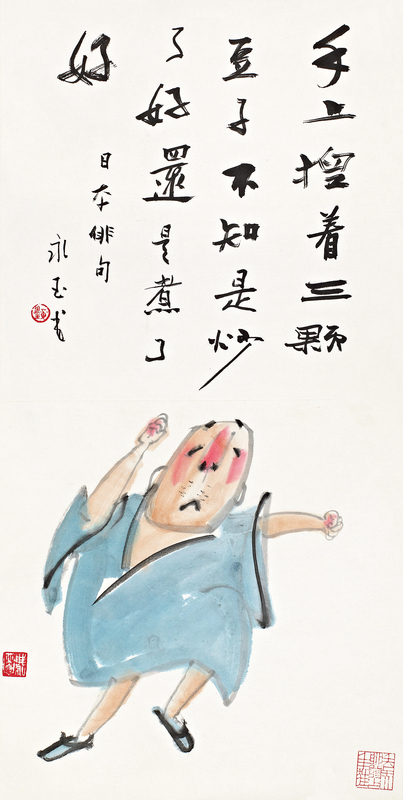 手上揑着三颗
豆子不知是炒
了好還是煮了
好
日本俳句
永玉